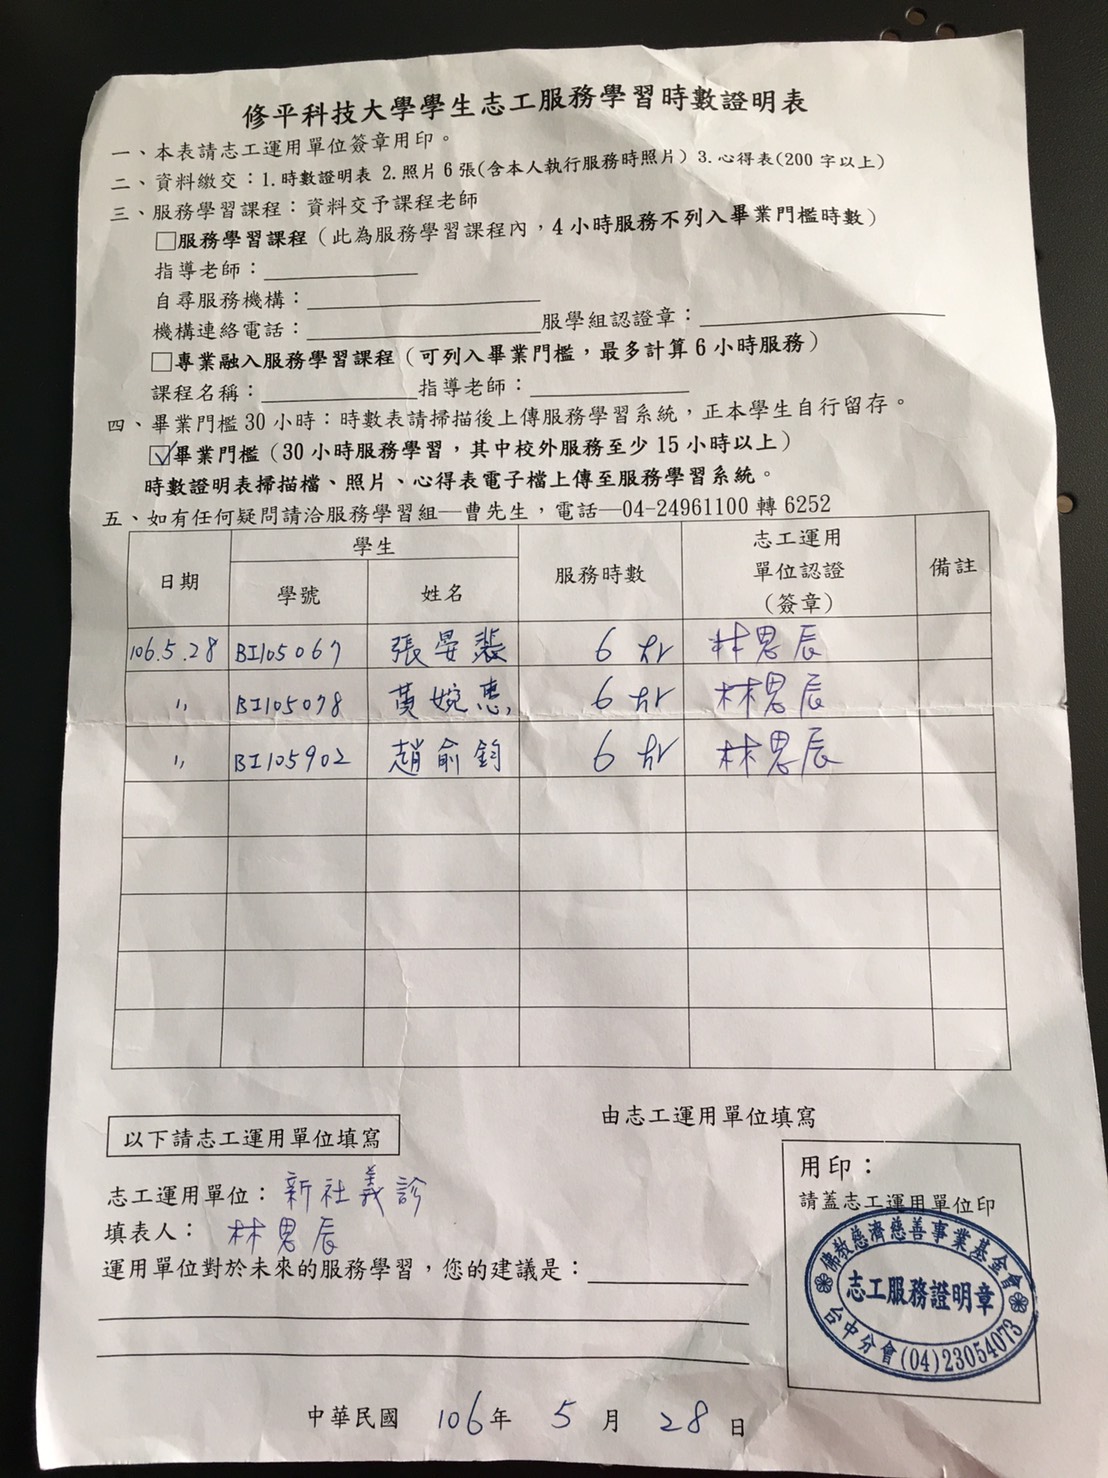 修平科技大學學生志工服務學習時數證明表
一、本表請志工運用單位簽章用印。
二、資料繳交：1.時數證明表 2.照片6張(含本人執行服務時照片) 3.心得表(200字以上)
三、服務學習課程：資料交予課程老師
□服務學習課程（此為服務學習課程內，4小時服務不列入畢業門檻時數）
指導老師：
自尋服務機構：
機構連絡電話： 服學組認證章：
□專業融入服務學習課程（可列入畢業門檻，最多計算6小時服務）
課程名稱： 指導老師：
四、畢業門檻30小時：時數表請掃描後上傳服務學習系統，正本學生自行留存。
☑畢業門檻（30小時服務學習，其中校外服務至少15小時以上）
時數證明表掃描檔、照片、心得表電子檔上傳至服務學習系統。
五、如有任何疑問請洽服務學習組—曹先生，電話—04-24961100轉6252
日期 學生 服務時數 志工運用單位認證（簽章） 備註
學號 姓名
106.5.28 BI105067 張晏裴 6 hr 林思辰
〃 BI105078 黃婉惠 6 hr 林思辰
〃 BI105902 趙俞鈞 6 hr 林思辰
由志工運用單位填寫
以下請志工運用單位填寫
志工運用單位：新社義診
填表人：林思辰
運用單位對於未來的服務學習，您的建議是：
用印：
請蓋志工運用單位印
佛教慈濟慈善事業基金會
志工服務證明章
台中分會(04)23054073
中華民國 106年 5 月 28 日